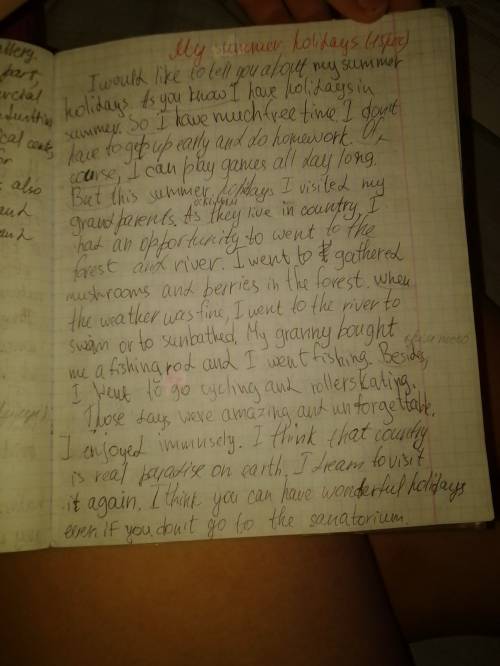 My summer holidays
I would like to tell you about my summer
holidays. As you know I have holidays in
summer. So I have much free time. I don't
have to get up early and do homework. Of
course, I can play games all day long.
But this summer holidays I visited my
grandparents. As they live in country, I
had an opportunity to went to the
forest and river. I went to gathered
mushrooms and berries in the forest. When
the weather was fine, I went to the river to
swam or to sunbathed. My granny bought
me a fishing rod and I went fishing. Besides,
I went to go cycling and rollerskating.
Those days were amazing and unforgettable.
I enjoyed immursely. I think that country
is real paradise on earth. I dream to visit
it again. I think you can have wonderful holidays
even if you don't go to the sanatorium.
allery.
part,
also
and
and